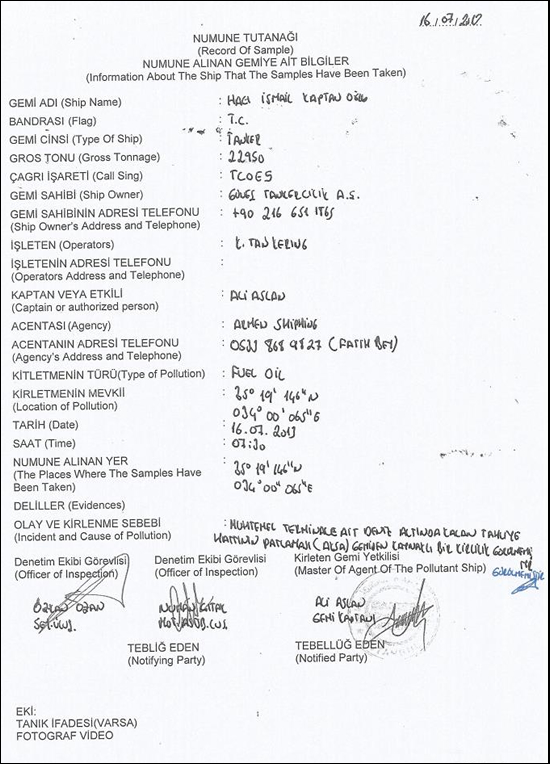 16/07/2013
NUMUNE TUTANAĞI
(Record Of Sample)
NUMUNE ALINAN GEMİYE AİT BİLGİLER
(Information About The Ship That The Samples Have Been Taken)
GEMİ ADI (Ship Name) : HACI İSMAİL KAPTAN OĞLU
BANDRASI (Flag) : T.C.
GEMİ CİNSİ (Type Of Ship) : TANKER
GROS TONU (Gross Tonnage) : 22950
ÇAGRI İŞARETİ (Call Sing) : TCOE5
GEMİ SAHİBİ (Ship Owner) : GÜNEŞ TANKERCİLİK A.Ş.
GEMİ SAHİBİNİN ADRESİ TELEFONU : +90 216 651
(Ship Owner's Address and Telephone)
İŞLETEN (Operators) K. TANKERING
İŞLETENİN ADRESİ TELEFONU :
(Operators Address and Telephone)
KAPTAN VEYA ETKİLİ : ALİ ASLAN
(Captain or authorized person)
ACENTASI (Agency) : ARMEN SHIPPING
ACENTANIN ADRESİ TELEFONU : 868 9827 (FATİH BEY)
(Agency's Address and Telephone)
KİTLETMENİN TÜRÜ(Type of Pollution) : FUEL OIL
KİRLETMENİN MEVKİİ : 35° 19' 146"N
(Location of Pollution) 034° 00' 065"E
TARİH (Date) : 16.07.2013
SAAT (Time) : 07:30
NUMUNE ALINAN YER : 35° 19' 146"N
(The Places Where The Samples Have 034° 00' 065"E
Been Taken)
DELİLLER (Evidences)
OLAY VE KİRLENME SEBEBİ : MUHTEMEL TERMİNALE AİT DENİZ ALTINDA KALAN TAHLİYE
(Incident and Cause of Pollution) HATTININ PATLAMASI (AKSA) GEMİDEN KAYNAKLI BİR KİRLİLİK
GÖRÜLMEMİŞTİR
Denetim Ekibi Görevlisi Denetim Ekibi Görevlisi Kirleten Gemi Yetkilisi
(Officer of Inspection) (Officer of Inspection) (Master Of Agent Of The Pollutant Ship)
ÖZKAN OZAN ALİ ASLAN
GEMİ KAPTANI
TEBLİĞ EDEN TEBELLÜĞ EDEN
(Notifying Party) (Notified Party)
EKİ:
TANIK İFADESİ(VARSA)
FOTOGRAF VİDEO